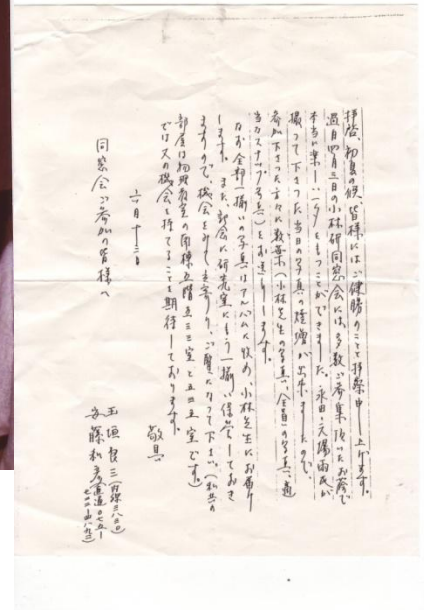 拝啓、初夏の候、皆様にはご健勝のことと拝察申し上げます。
過日四月三日の小林研同窓会には、多数ご参集頂いたお蔭で
本当に楽しい一夕をもつことができました。永田・大場両氏が
撮って下さった当日の写真の焼増が出来ましたので、
参加下さった方々に数葉(小林先生の写真、全員の写真、適
当なスナップ写真)をお送りします。
なお全部一揃いの写真はアルバムに収め、小林先生にお届け
します。また、記念に研究室にもう一揃い保管しておき
ますので、機会をみてお立寄り、ご覧になって下さい。(私共の
部屋は物理教室の南棟五階五三三室と五三五室です。)
では又の機会を持てることを期待しております。
敬具
六月十二日
玉垣良三(内線三八三〇)
安藤和彦(直通〇七五―
同窓会ご参加の皆様へ